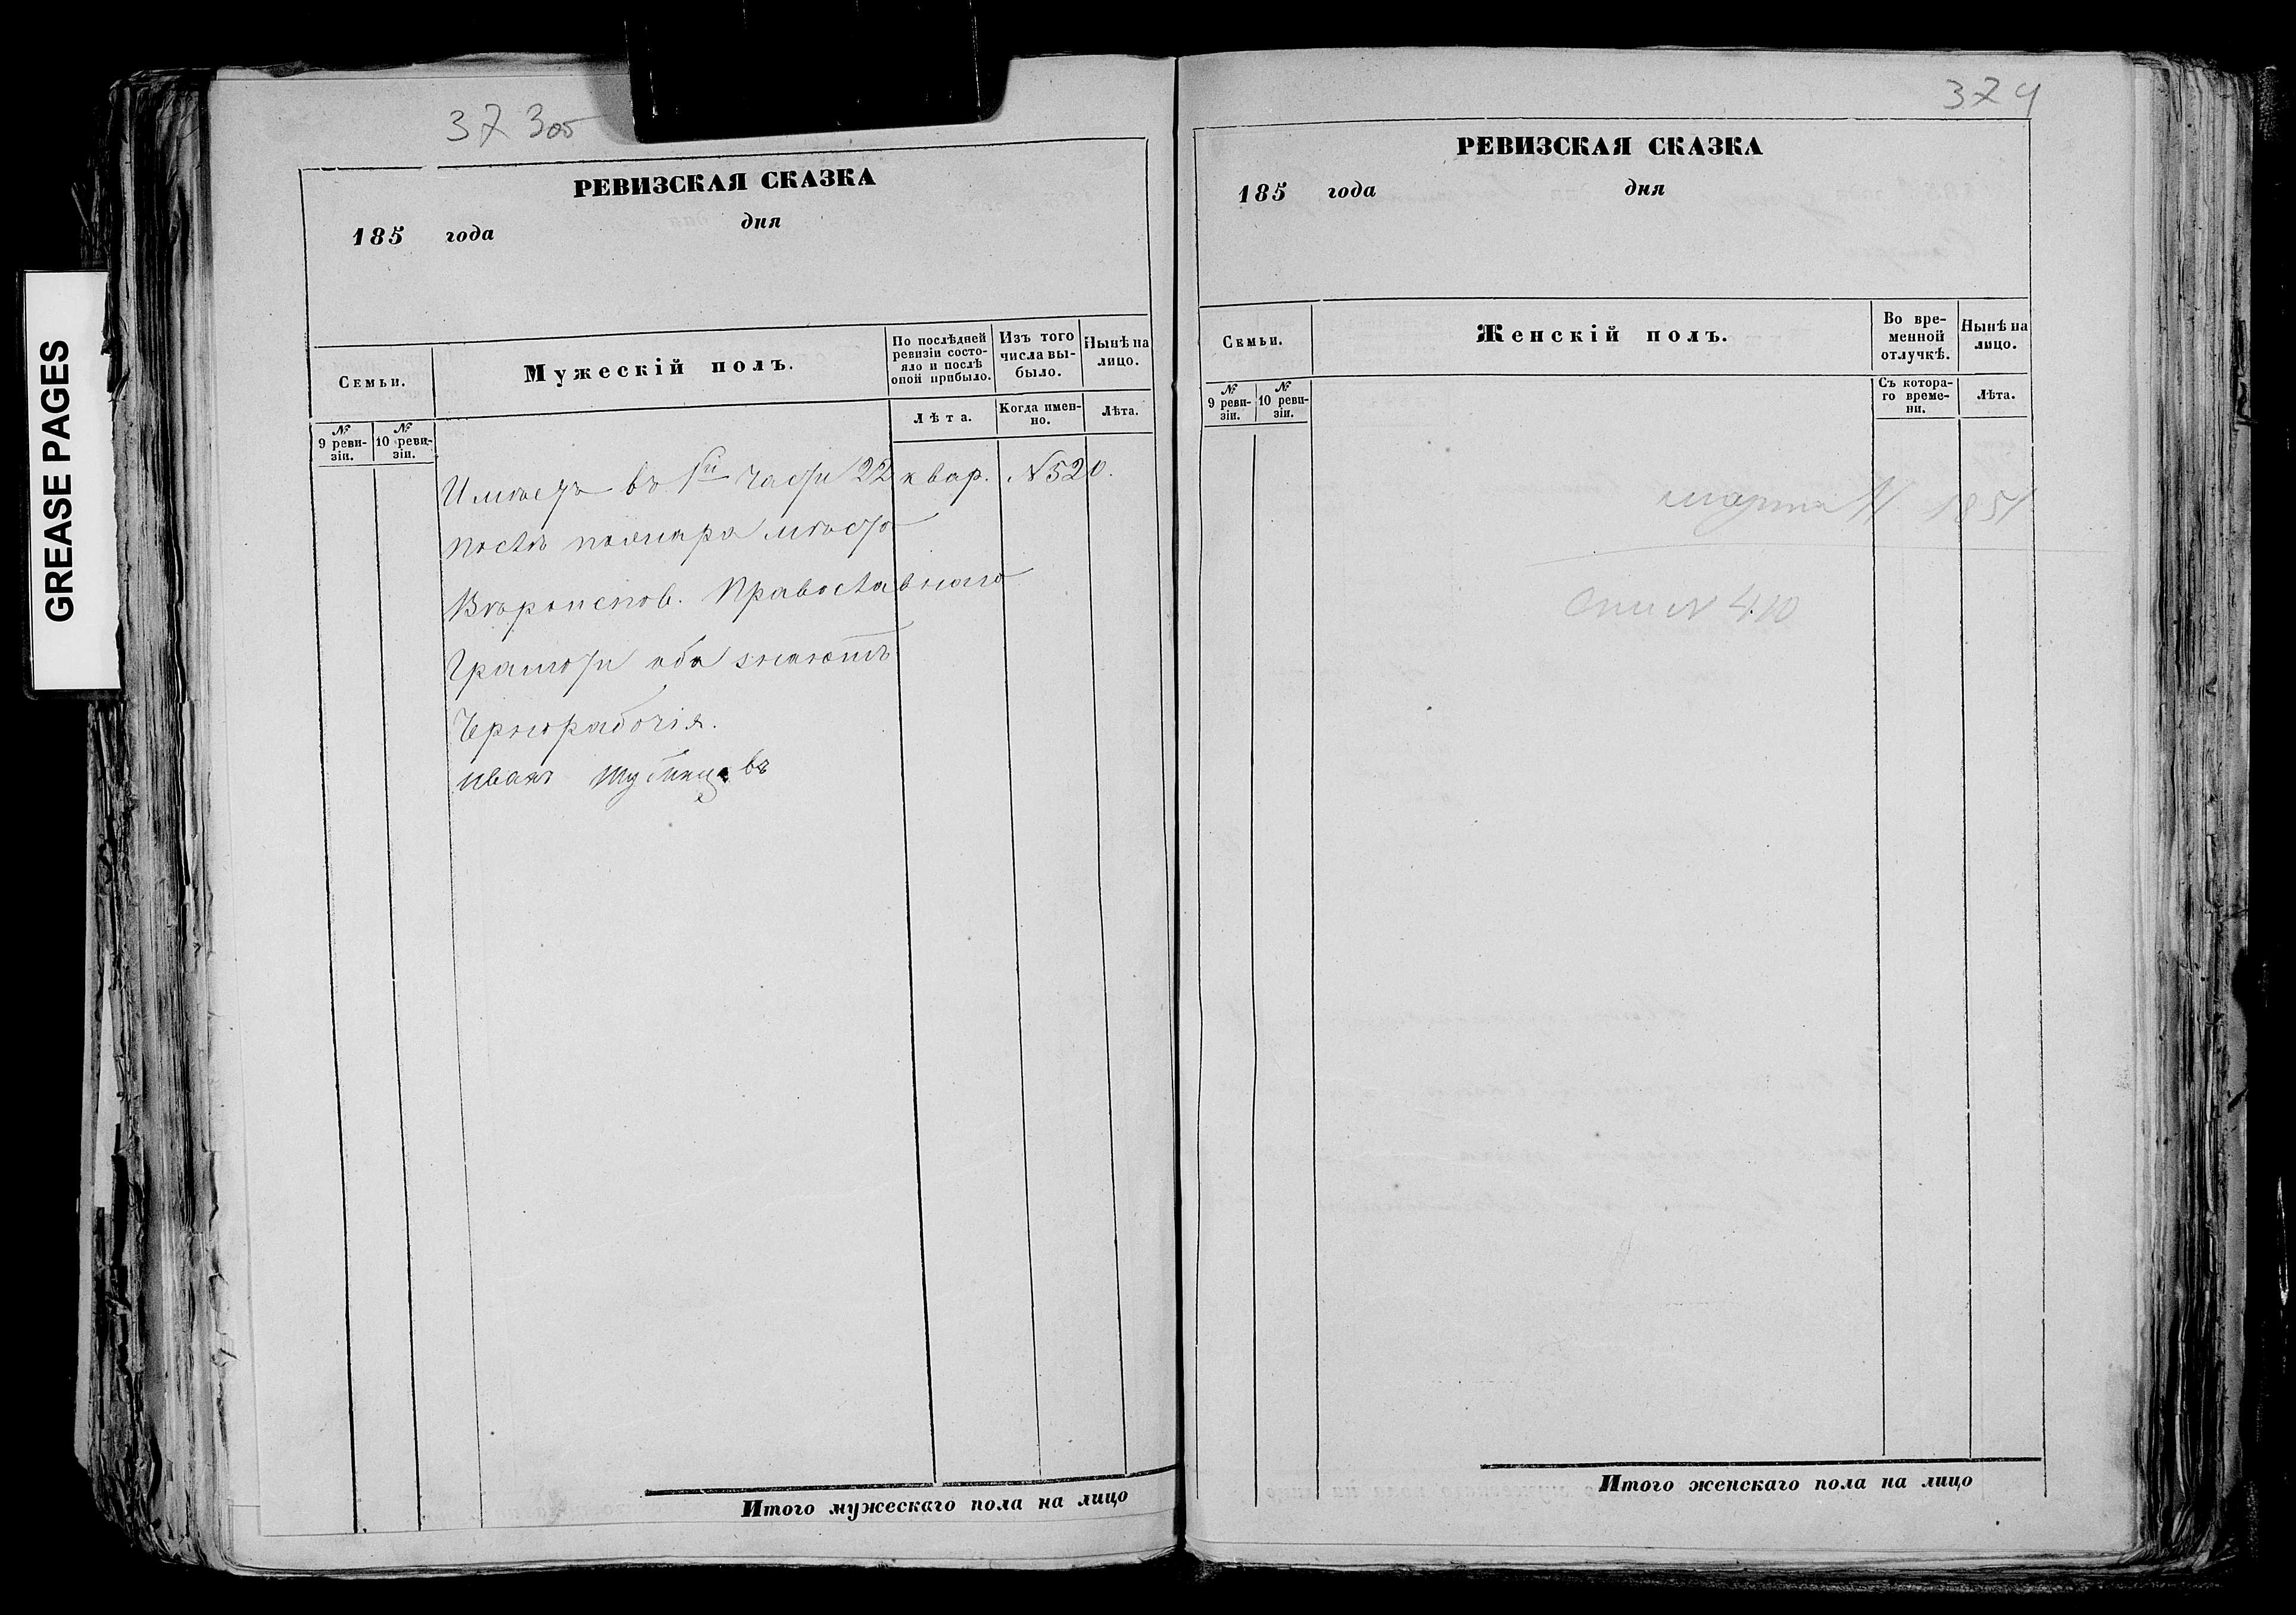 GREASE PAGES
373об
РЕВИЗСКАЯ СКАЗКА
185 года дня
Семьи.
Мужескій полъ.
По послѣдней ревизіи состояло и послѣ оной прибыло.
Изъ того числа выбыло.
Нынѣ на лицо.
№ 9 ревизіи.
№ 10 ревизіи.
Лѣта.
Когда именно.
Лѣта.
Имѣетъ въ 1й части 22 квар. № 520.
послѣ пожара мѣсто
Вѣроиспов. Православнаго
Грамоти оба знаютъ
Чернорабочія.
Иванъ
Итого мужескаго пола на лицо
374
РЕВИЗСКАЯ СКАЗКА
185 года дня
Семьи.
Женскій полъ.
Во временной отлучкѣ.
Нынѣ на лицо.
№ 9 ревизіи.
№ 10 ревизіи.
Съ котораго времени.
Лѣта.
марта 11 1851
410
Итого женскаго пола на лицо